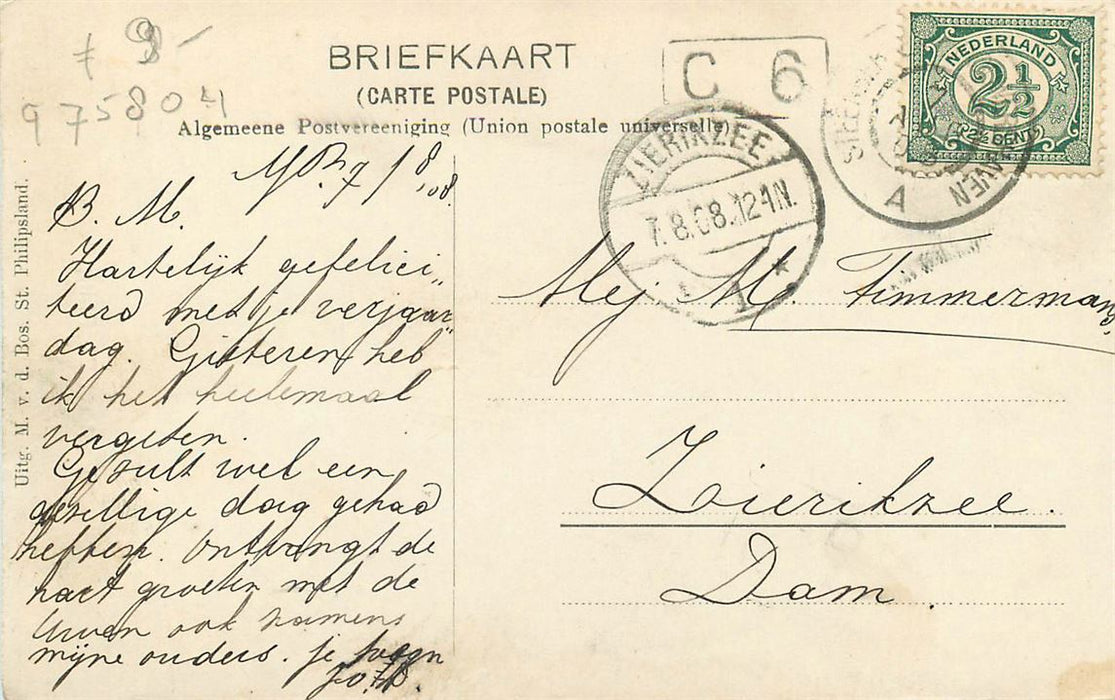 9-
975804
BRIEFKAART
(CARTE POSTALE)
Algemeene Postvereeniging (Union postale universelle)
C 6
NEDERLAND
2½
(2½ CENT)
A
ZIERIKZEE
7.8.08.12-1N.
1
Uitg. M. v. d. Bos. St. Philipsland.
7/8,08.
B. M.
Hartelijk gefelici„
teerd met je verjaar„
dag. Gisteren heb
ik het heelemaal
vergeten.
Ge zult wel een
gezellige dag gehad
hebben. Ontvangt de
hart groeten met de
Uwen ook namens
mijne ouders. je
Mej M. Timmerman,
Zierikzee.
Dam.